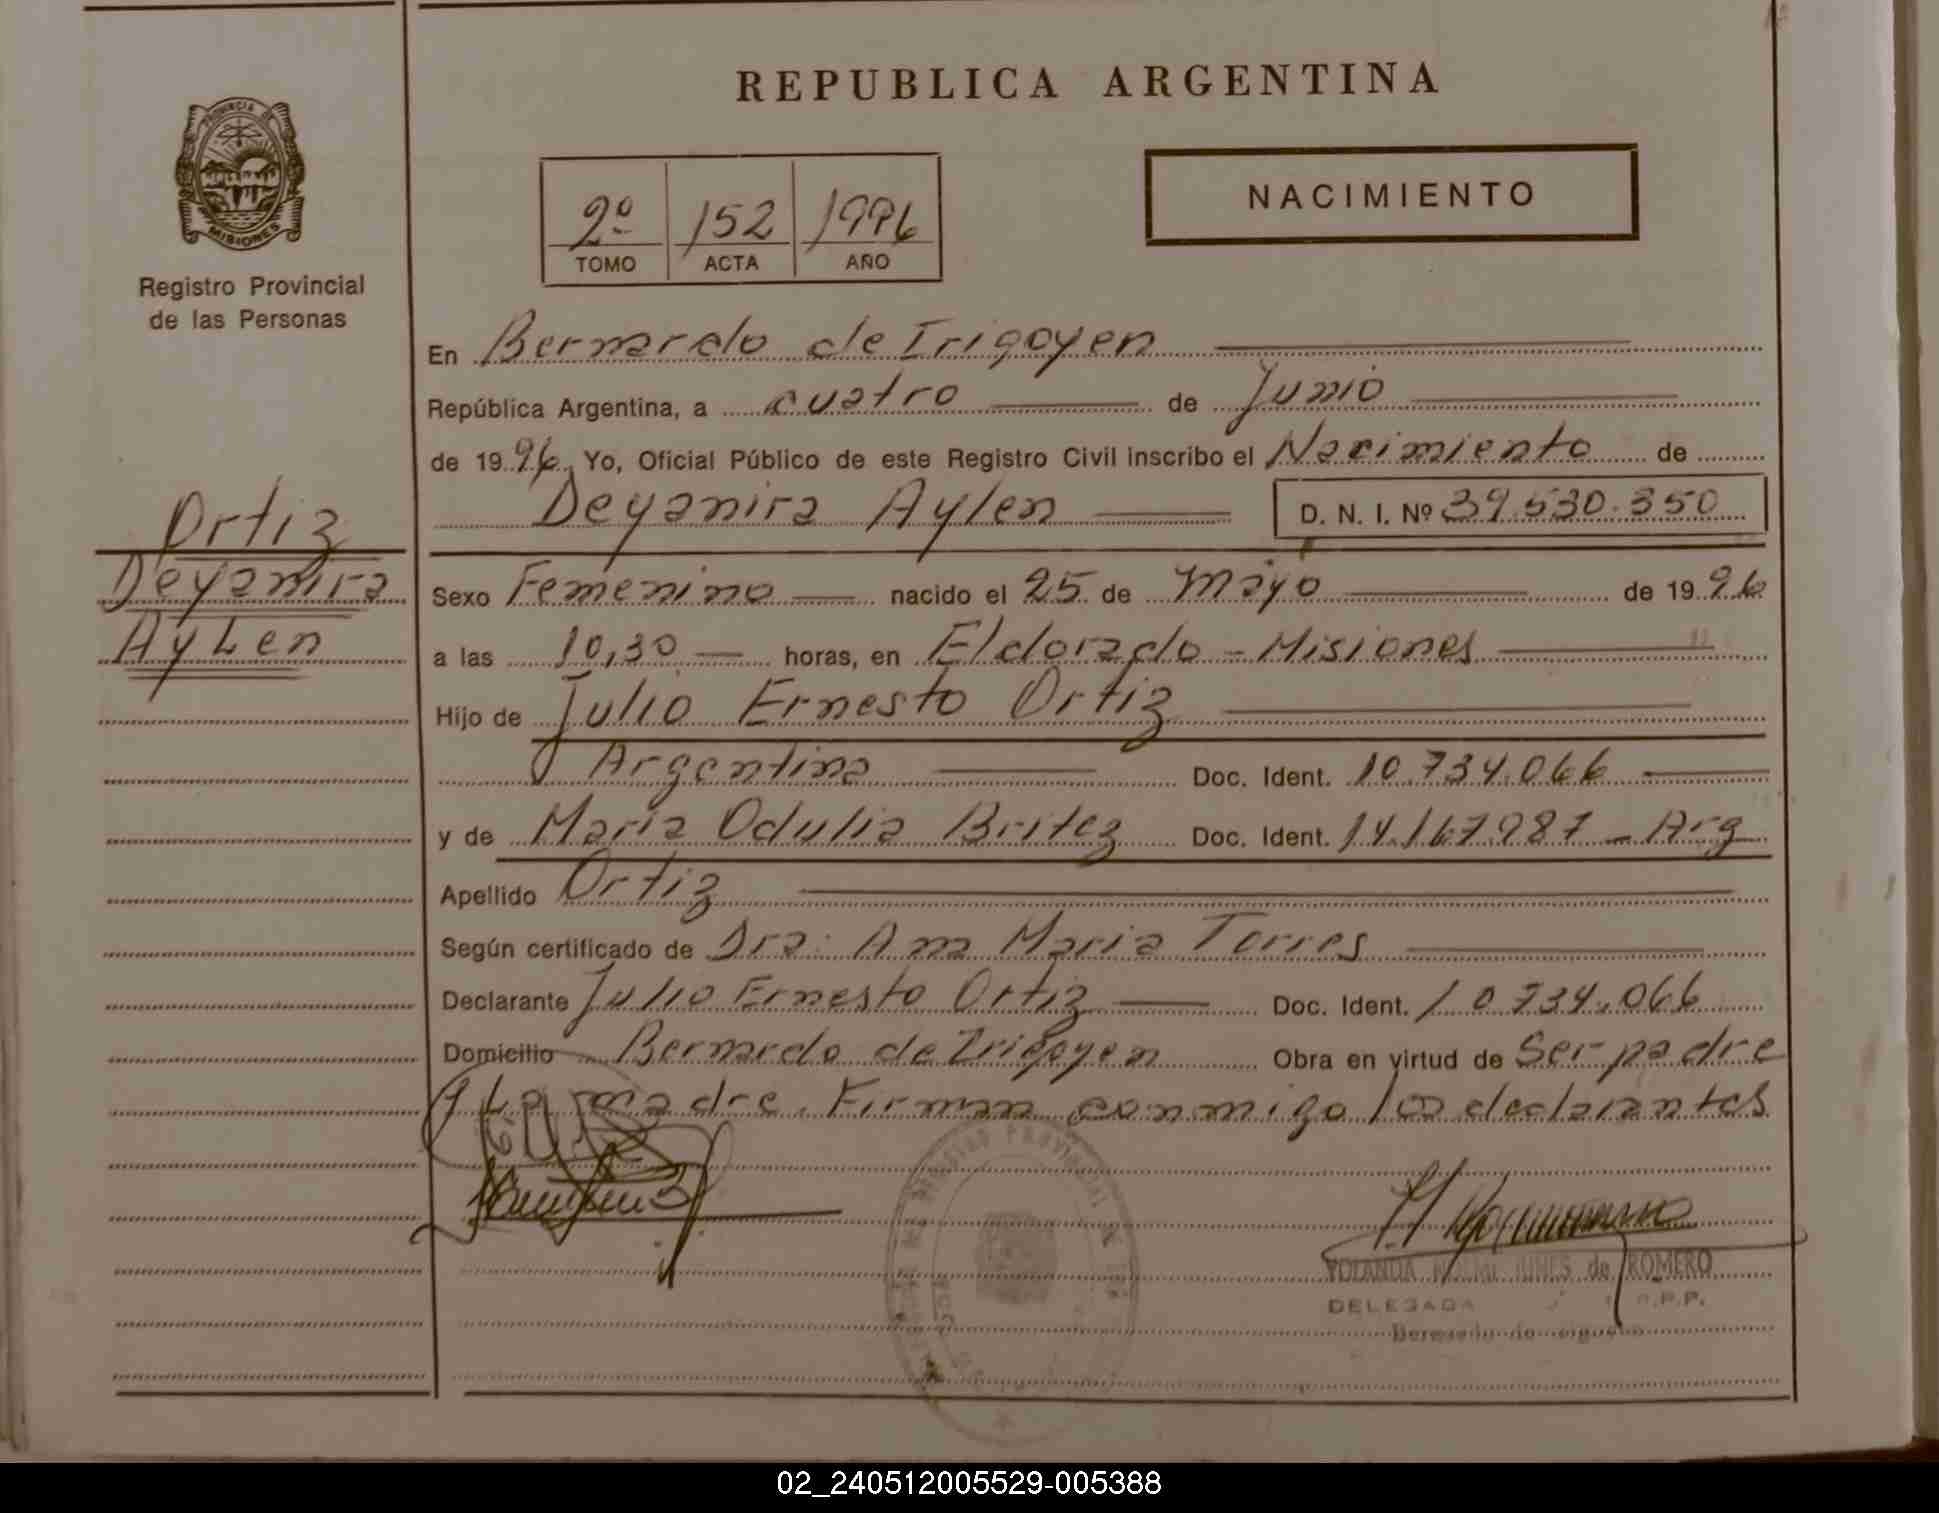 REPUBLICA ARGENTINA
PROVINCIA DE
MISIONES
Registro Provincial
de las Personas
NACIMIENTO
2º 152 1996
TOMO ACTA AÑO
En Bernardo de Irigoyen
República Argentina, a cuatro de Junio
de 1996 Yo, Oficial Público de este Registro Civil inscribo el Nacimiento de
Deyanira Aylen D. N. I. Nº 39.530.350
Ortiz
Deyanira
Aylen
Sexo Femenino nacido el 25 de Mayo de 1996
a las 10,30 horas, en Eldorado - Misiones
Hijo de Julio Ernesto Ortiz
Argentina Doc. Ident. 10.734.066
y de Maria Odulia Britez Doc. Ident. 14.167.987 - Arg
Apellido Ortiz
Según certificado de Dra. Ana Maria Torres
Declarante Julio Ernesto Ortiz Doc. Ident. 10.734.066
Domicilio Bernardo de Irigoyen Obra en virtud de Ser padre
y La madre. Firman conmigo los declarantes
YOLANDA de ROMERO
DELEGADA R.P.P.
Bernardo de
02_240512005529-005388